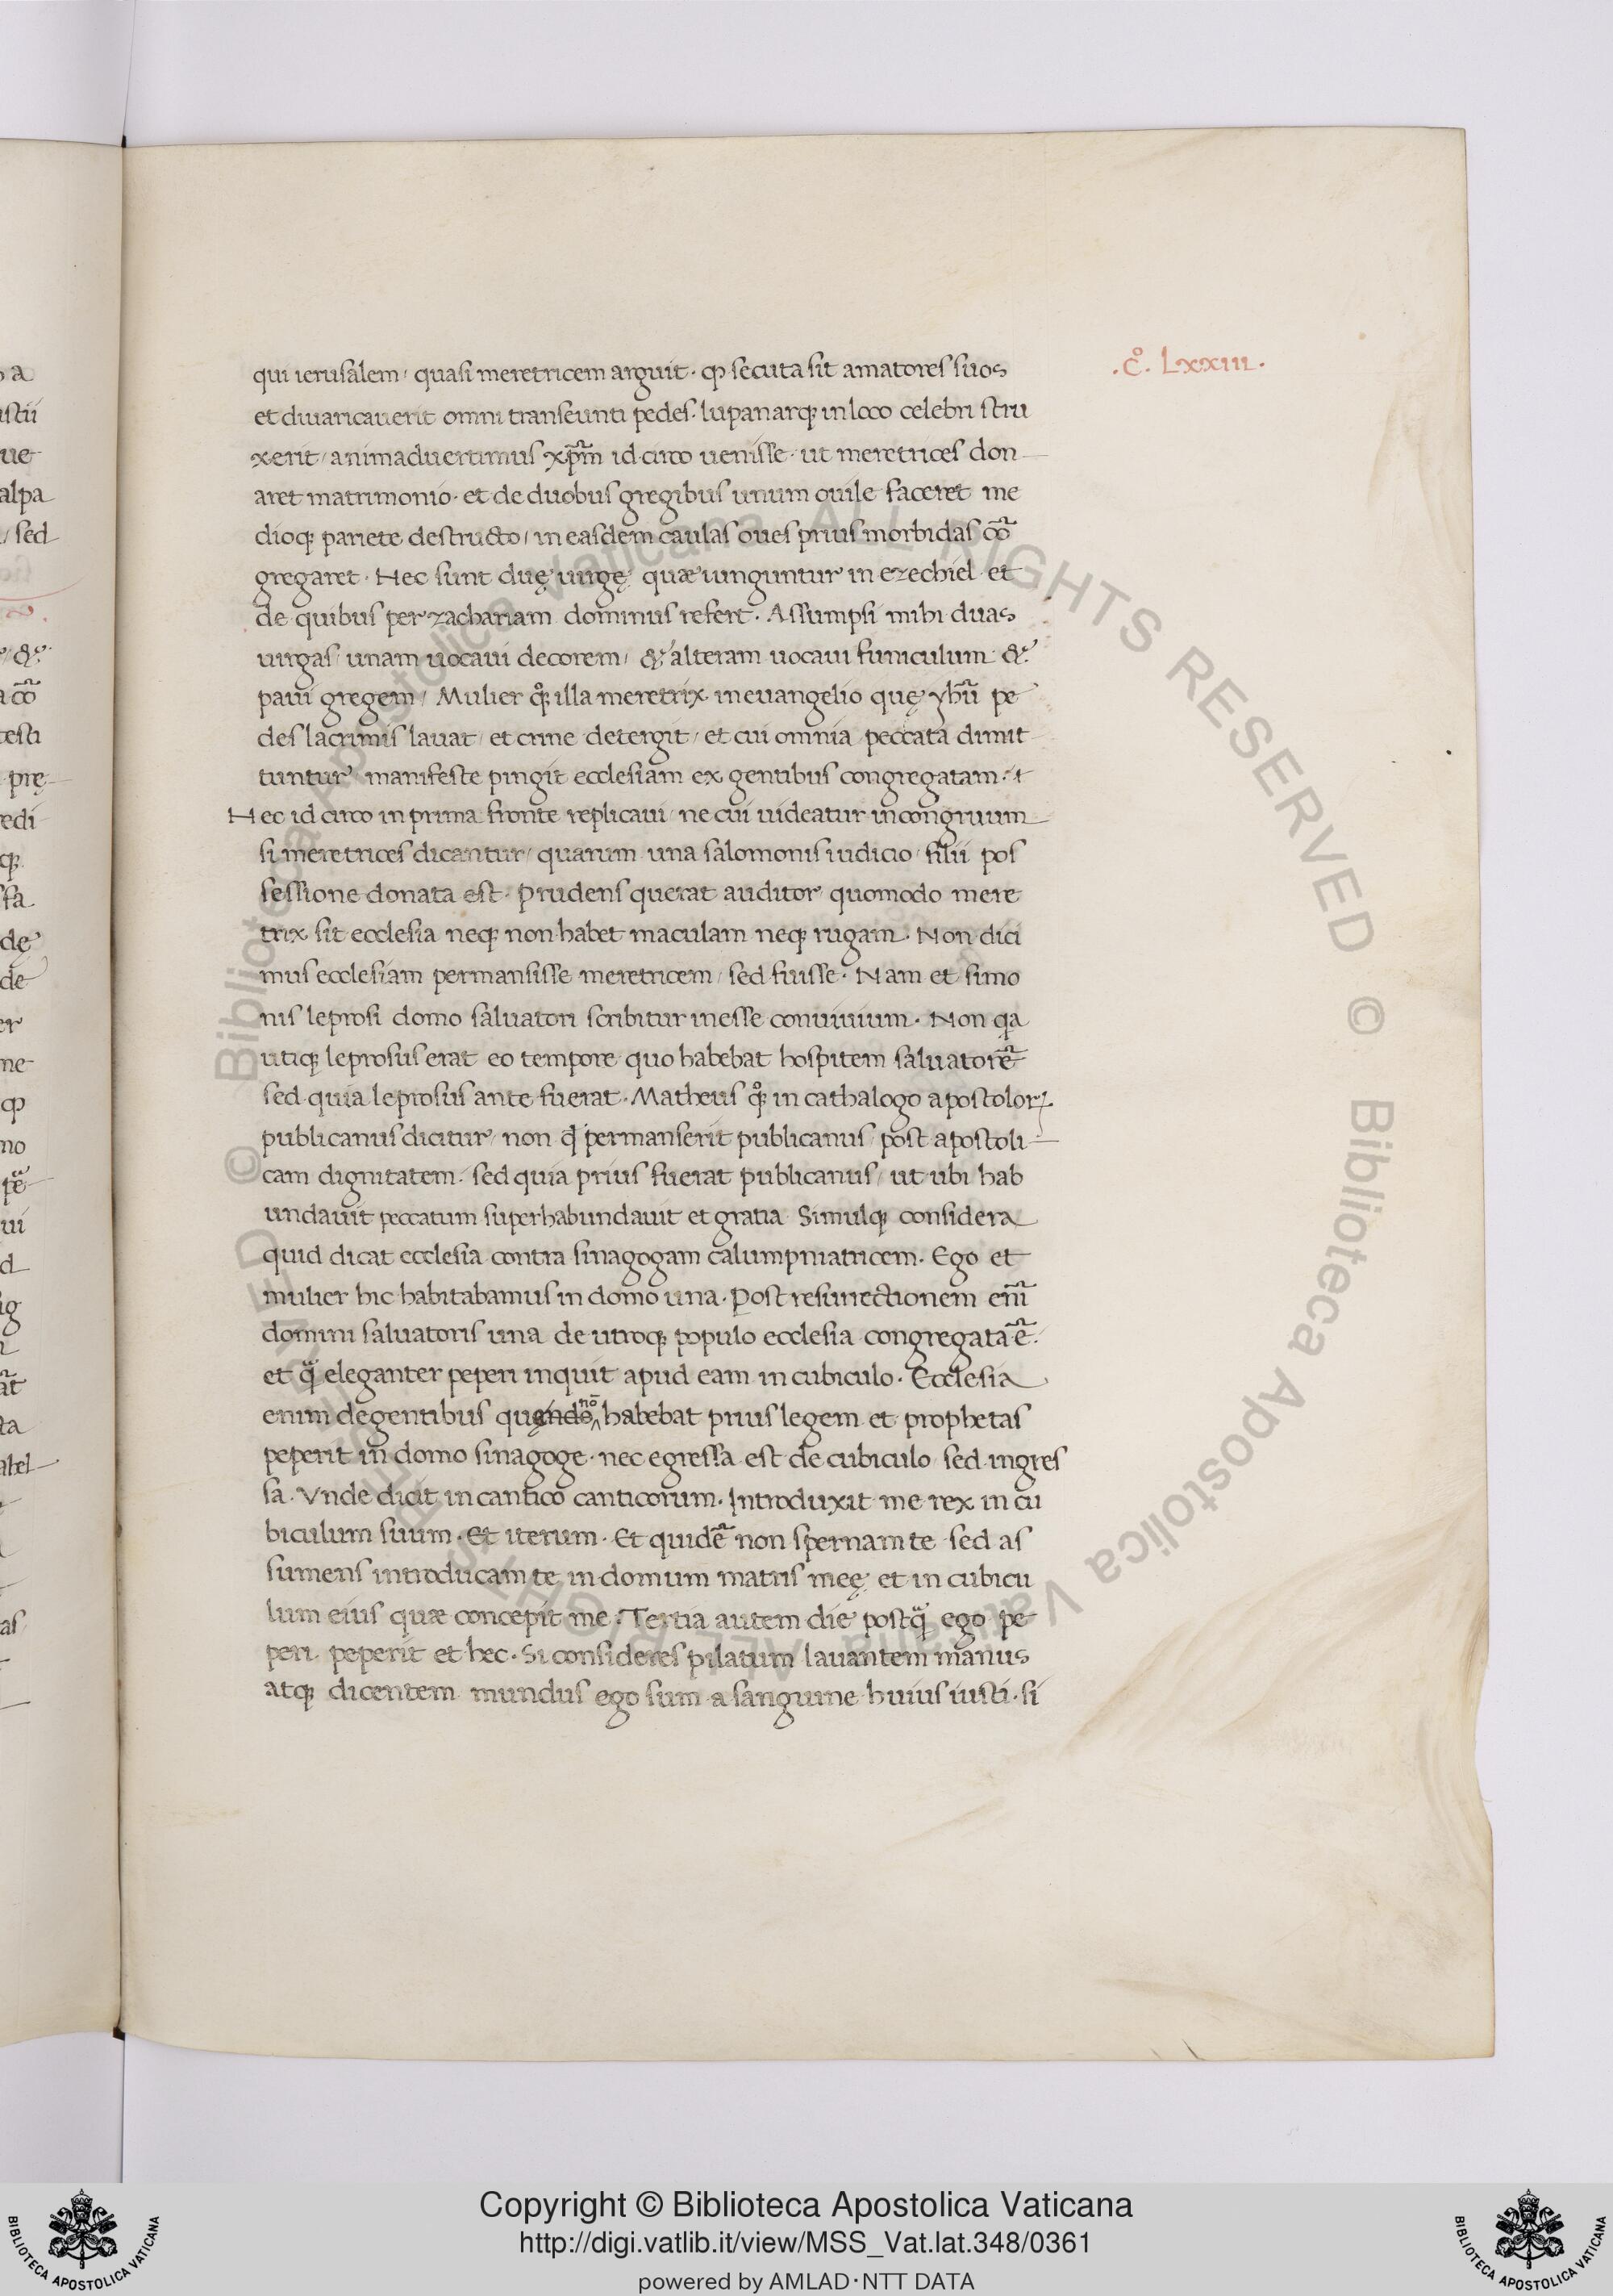 qui ierusalem / quasi meretricem arguit · ꝙ secuta sit amatores suos
.c̊. Lxxiii.
et diuaricauerit omni transeunti pedes · lupanarqꝫ in loco celebri stru
xerit / animaduertimus xp̄m id circo uenisse · ut meretrices don
aret matrimonio · et de duobus gregibus unum ouile faceret me
dioqꝫ pariete destructo / in easdem caulas oues prius morbidas cō
gregaret · Hec sunt duę uirgę quæ iunguntur in ezechiel et
de quibus per zachariam dominus refert · Assumpsi mihi duas
uirgas / unam uocaui decorem / & alteram uocaui funiculum &
paui gregem / Mulier qͦꝫ illa meretrix · in euangelio quę yhū pe
des lacrimis lauat / et crine detergit / et cui omnia peccata dimit
tuntur manifeste pingit ecclesiam ex gentibus congregatam ·
Hec id circo in prima fronte replicaui / ne cui uideatur incongruum
si meretrices dicantur / quarum una salomonis iudicio / filii pos
sessione donata est · Prudens querat auditor quomodo mere
trix sit ecclesia neqꝫ non habet maculam neqꝫ rugam · Non dici
mus ecclesiam permansisse meretricem / sed fuisse · Nam et simo
nis leprosi domo saluatori scribitur inesse conuiuium · Non qa
utiqꝫ leprosus erat eo tempore quo habebat hospitem saluatorē
sed quia leprosus ante fuerat · Matheus qͦꝫ in cathalogo apostoloꝝ
publicanus dicitur / non ꝙ permanserit publicanus / post apostoli
cam dignitatem · sed quia prius fuerat publicanus / ut ubi hab
undauit peccatum superhabundauit et gratia Simulqꝫ considera
quid dicat ecclesia contra sinagogam calumpniatricem · Ego et
mulier hic habitabamus in domo una · Post resurrectionem eni᷑
domini saluatoris una de utroqꝫ populo ecclesia congregata ē ·
et q̄ eleganter peperi inquit apud eam in cubiculo · Ecclesia
enim de gentibus quę nō habebat prius legem et prophetas
peperit in domo sinagoge · nec egressa est de cubiculo / sed ingres
sa · Vnde dicit in cantico canticorum · Introduxit me rex in cu
biculum suum · Et iterum · Et quidē non spernam te sed as
sumens introducam te in domum matris meę et in cubicu
lum eius quæ concepit me · Tertia autem die postq̄ ego pe
peri peperit et hec · Si consideres pilatum lauantem manus
atqꝫ dicentem mundus ego sum a sanguine huius iusti · si
© Biblioteca Apostolica Vaticana ALL RIGHTS RESERVED © Biblioteca Apostolica Vaticana ALL RIGHTS RESERVED
Copyright © Biblioteca Apostolica Vaticana
http://digi.vatlib.it/view/MSS_Vat.lat.348/0361
powered by AMLAD・NTT DATA
BIBLIOTECA APOSTOLICA VATICANA
BIBLIOTECA APOSTOLICA VATICANA